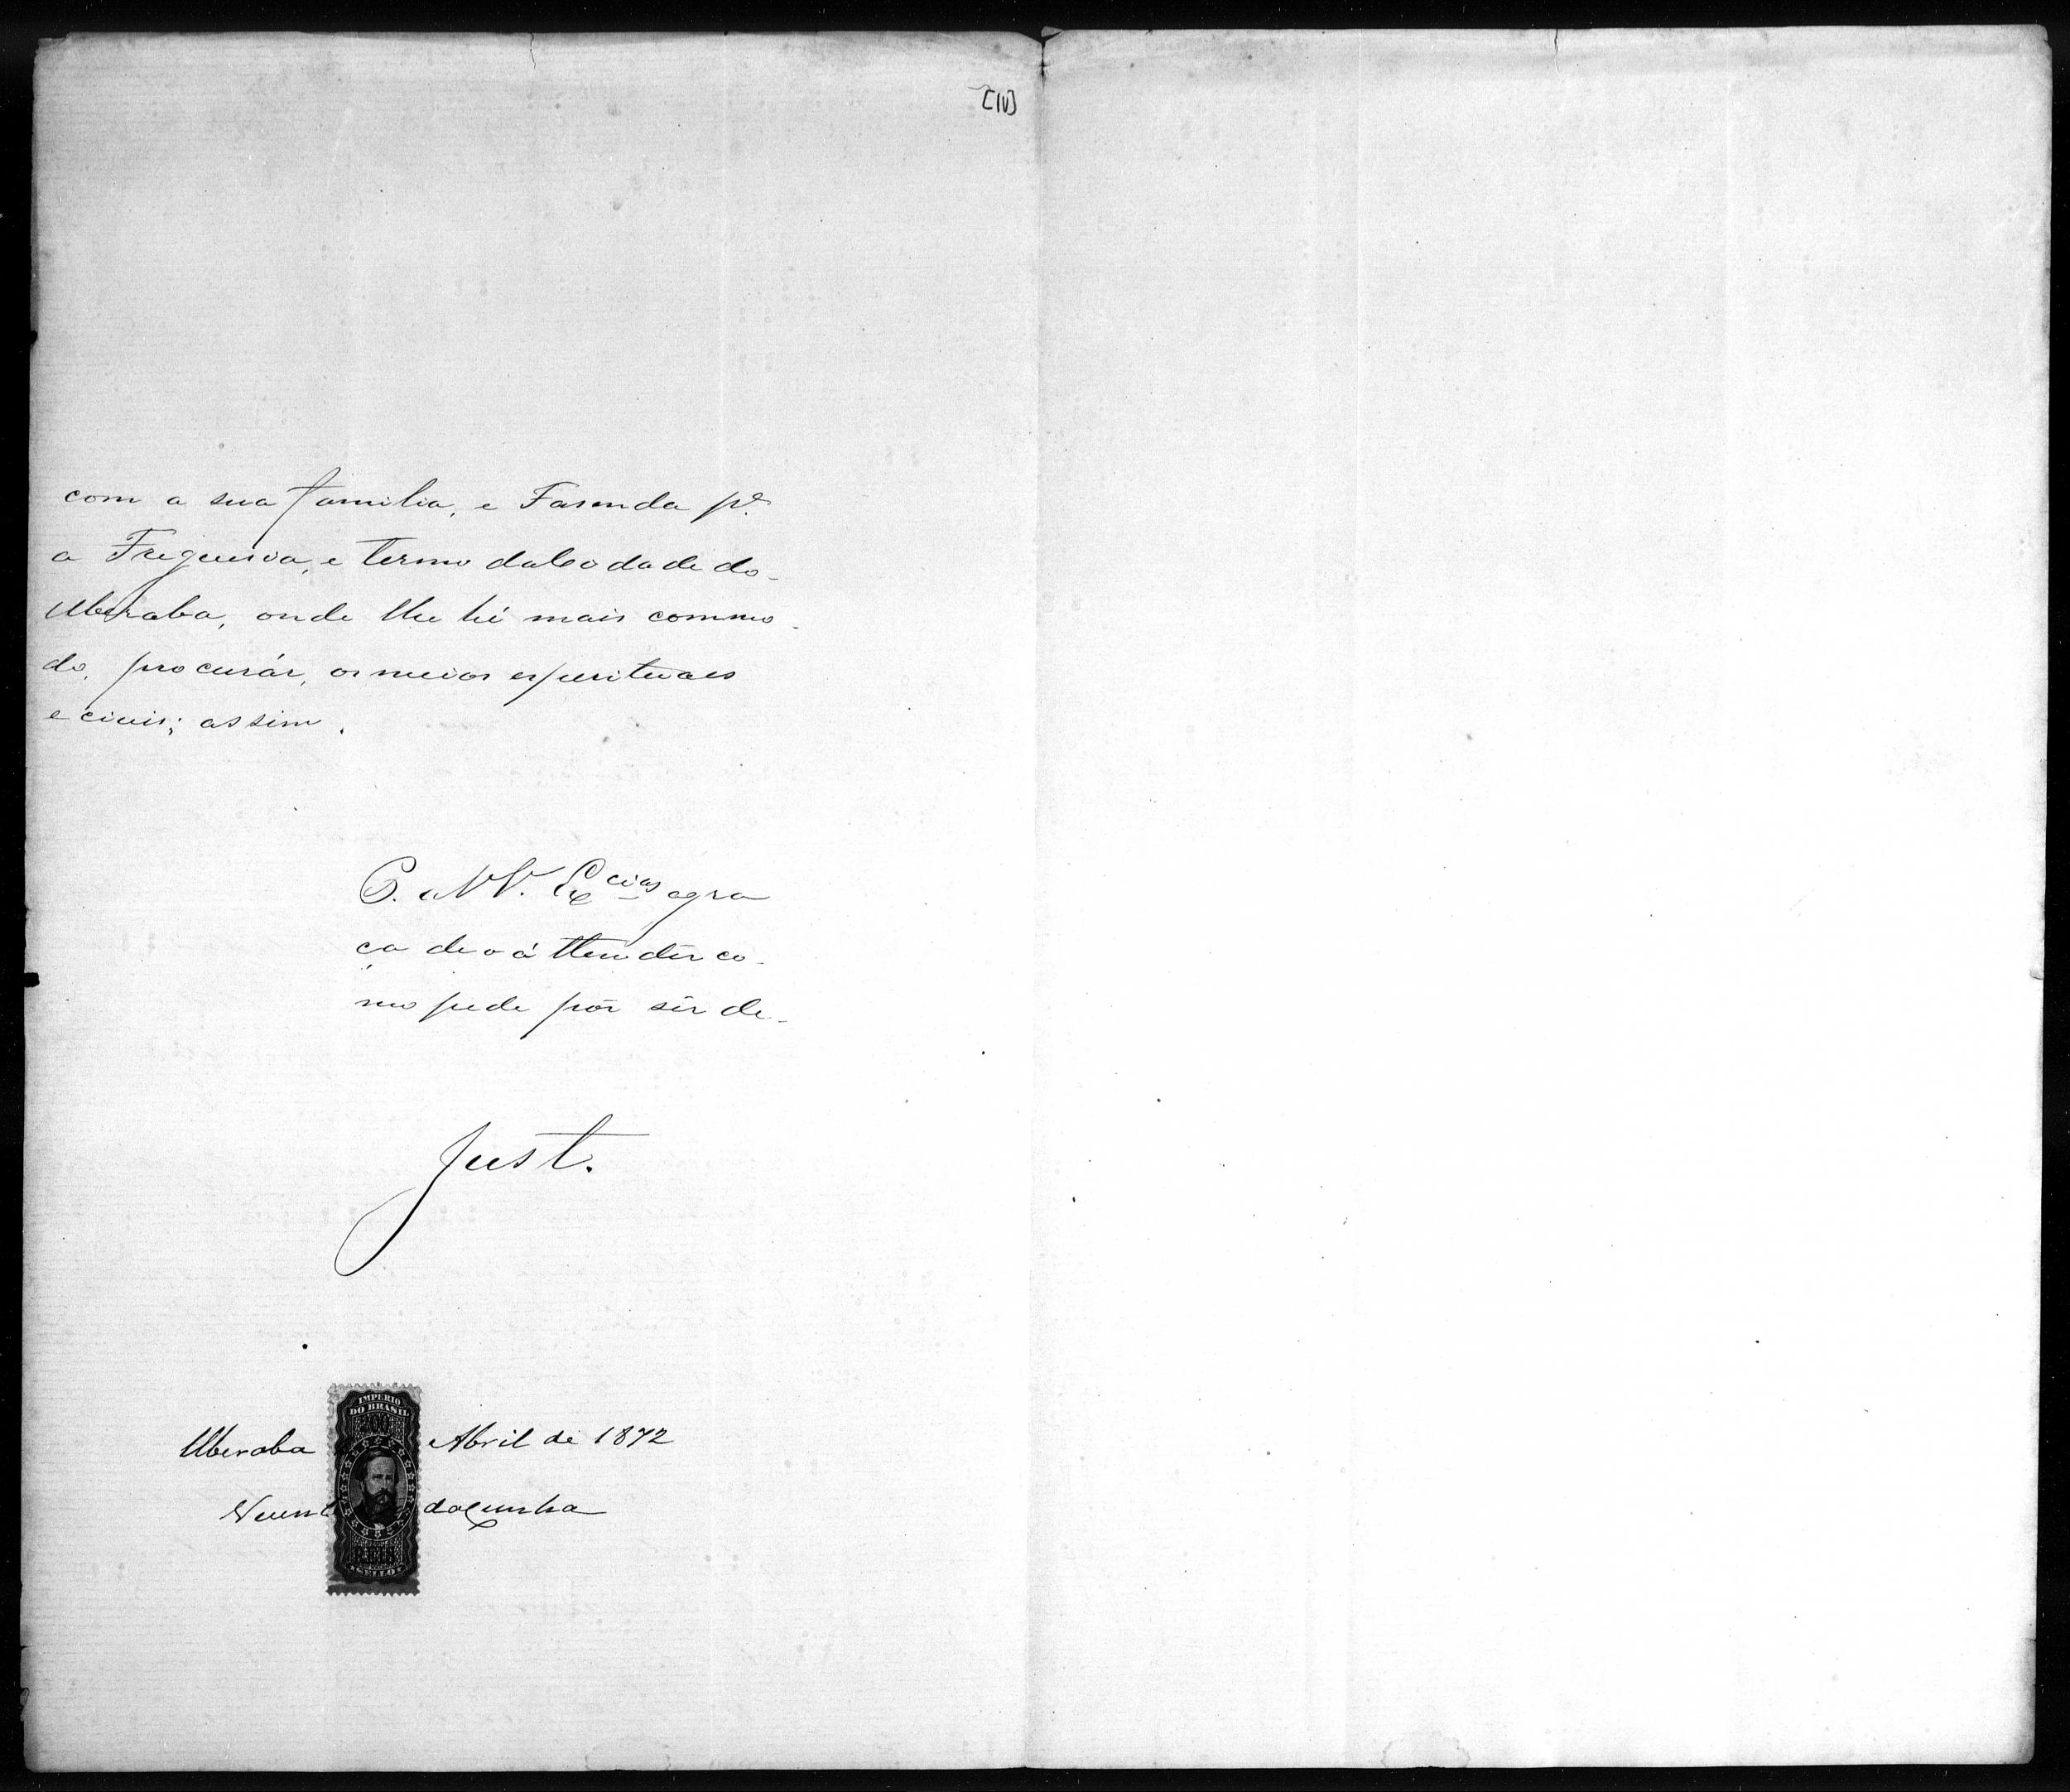 [1v]
com a sua familia, e Fasenda pª
a Freguesia, e termo da Cidade do
Uberaba, onde lhe hé mais commo-
do, procurár, os meios esperituaes
e civis; assim,
P. a VV. Exᶜⁱᵃˢ a gra
ça de o áttendêr co-
mo pede pôr sêr de-
Just.
IMPERIO
DO BRASIL
Uberaba Abril de 1872
da Cunha
REIS
SELLO